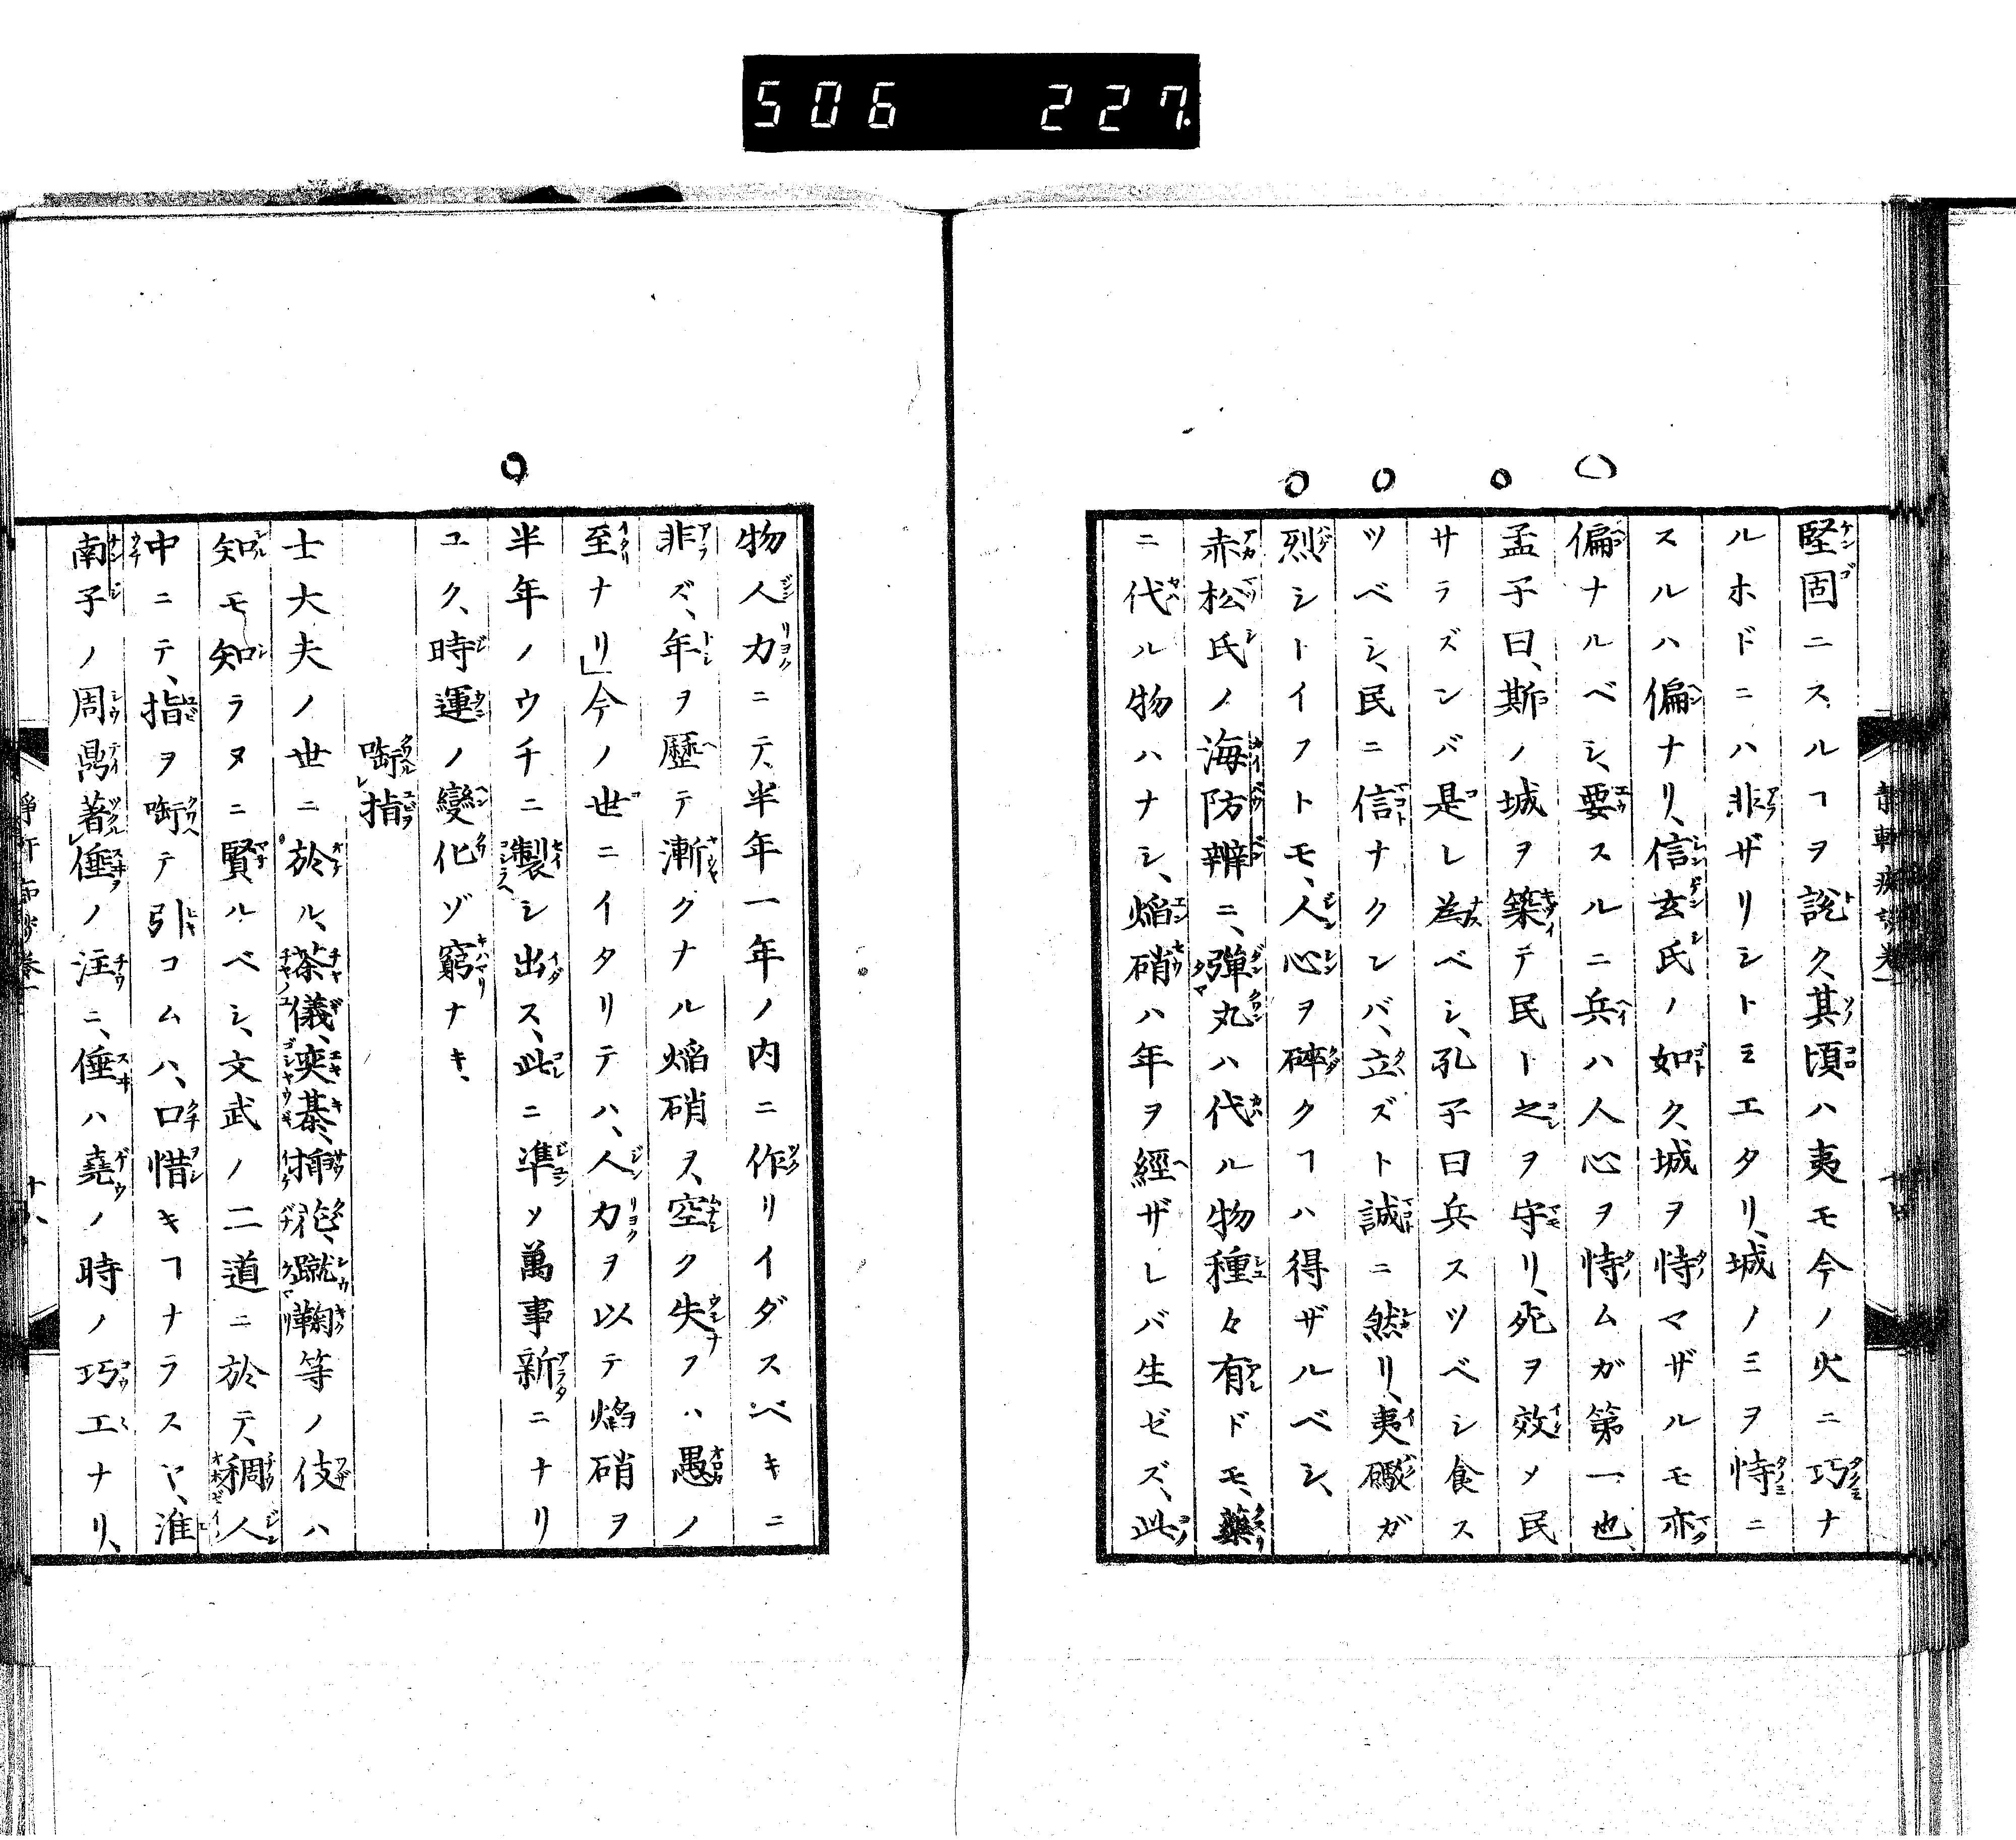 506 227.
堅固ニスルヿヲ說ク、其頃ハ夷モ今ノ火ニ巧ナ
ルホドニハ非ザリシトミエタリ、城ノミヲ恃ニ
スルハ偏ナリ、信玄氏ノ如ク、城ヲ恃マザルモ亦
偏ナルベシ、要スルニ兵ハ人心ヲ恃ムガ第一也、
孟子曰、斯ノ城ヲ築テ民ト之ヲ守リ、死ヲ效メ民
サラズンバ是レ為ベシ、孔子曰兵スツベシ食ス
ツベシ、民ニ信ナクレバ、立ズト誠ニ然リ、夷礮ガ
烈シトイフトモ、人心ヲ碎クヿハ得ザルベシ、
赤松氏ノ海防辨ニ、彈丸ハ代ル物種々有ドモ、藥
ニ代ル物ハナシ、焔硝ハ年ヲ經ザレバ生ゼズ、此
物人力ニテ、半年一年ノ内ニ作リイダスベキニ
非ズ、年ヲ歷テ漸クナル焔硝ヲ、空ク失フハ愚ノ
至ナリ」今ノ世ニイタリテハ、人力ヲ以テ焔硝ヲ
半年ノウチニ製シ出ス、此ニ準ソ萬事新ニナリ
ユク、時運ノ變化ゾ窮ナキ、
嚙指
士大夫ノ世ニ於ル、茶儀、奕棊、揷花、蹴鞠等ノ伎ハ
知モ知ラヌニ賢ルベシ、文武ノ二道ニ於テ、稠人
中ニテ、指ヲ嚙テ引コムハ、口惜キヿナラスヤ、淮
南子ノ周鼎著倕ノ注ニ、倕ハ堯ノ時ノ巧工ナリ、